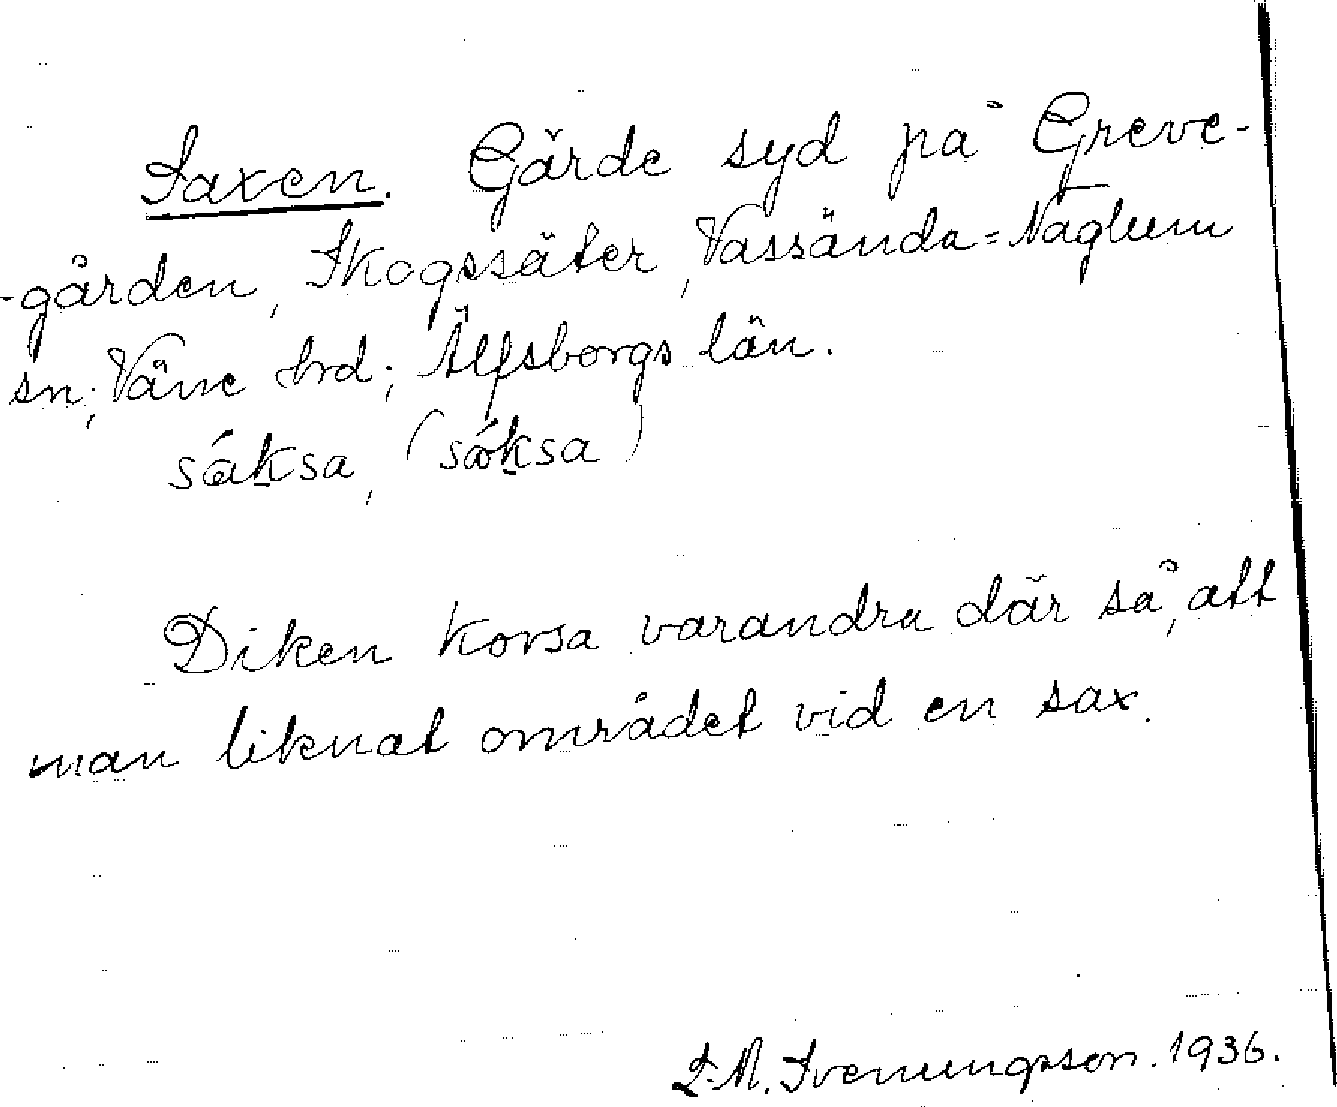 Saxen. Gärde syd på Greve-
-gården, Skogssäter, Vassända=Naglum
sn; Väne hrd; Älfsborgs län.
sáksa, (sǿksa)
Diken korsa varandra där så, att
man liknat området vid en sax.
D.A. Svenungsson. 1936.